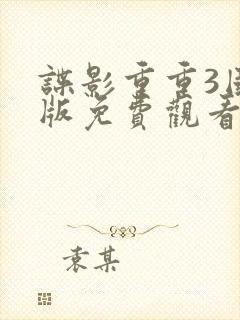 諜影重重3
版免費觀看
袁某